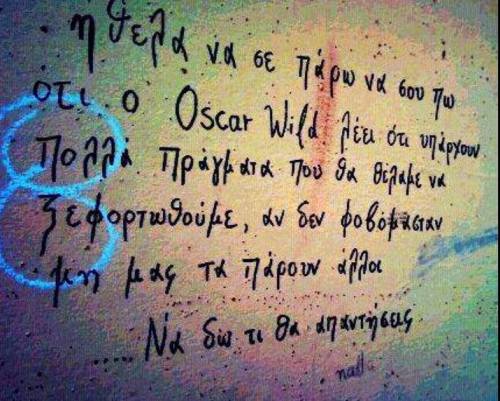 ήθελα να σε πάρω να σου πω
ότι ο Oscar Wild λέει ότι υπάρχουν
πολλά πράγματα που θα θέλαμε να
ξεφορτωθούμε, αν δεν φοβόμασταν
μη μας τα πάρουν άλλοι
..... Να δω τι θα απαντήσεις